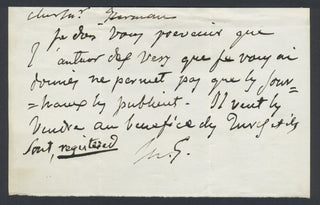 cher Mr. Herman
Je dois vous prévenir que
l'auteur des vers que je vous ai
donnés ne permet pas que les jour=
=naux les publient. Il veut les
vendre au bénéfice des
sont, registered